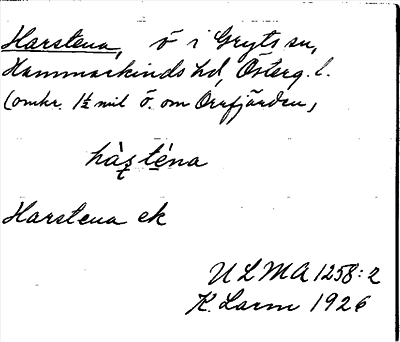 Harstena, ö i Gryts sn,
Hammarkinds hd, Österg. l.
(omkr. 1½ mil ö. om Orrfjärden,
hàʂténa
Harstena ek
ULMA 1258:2
K. Larm 1926